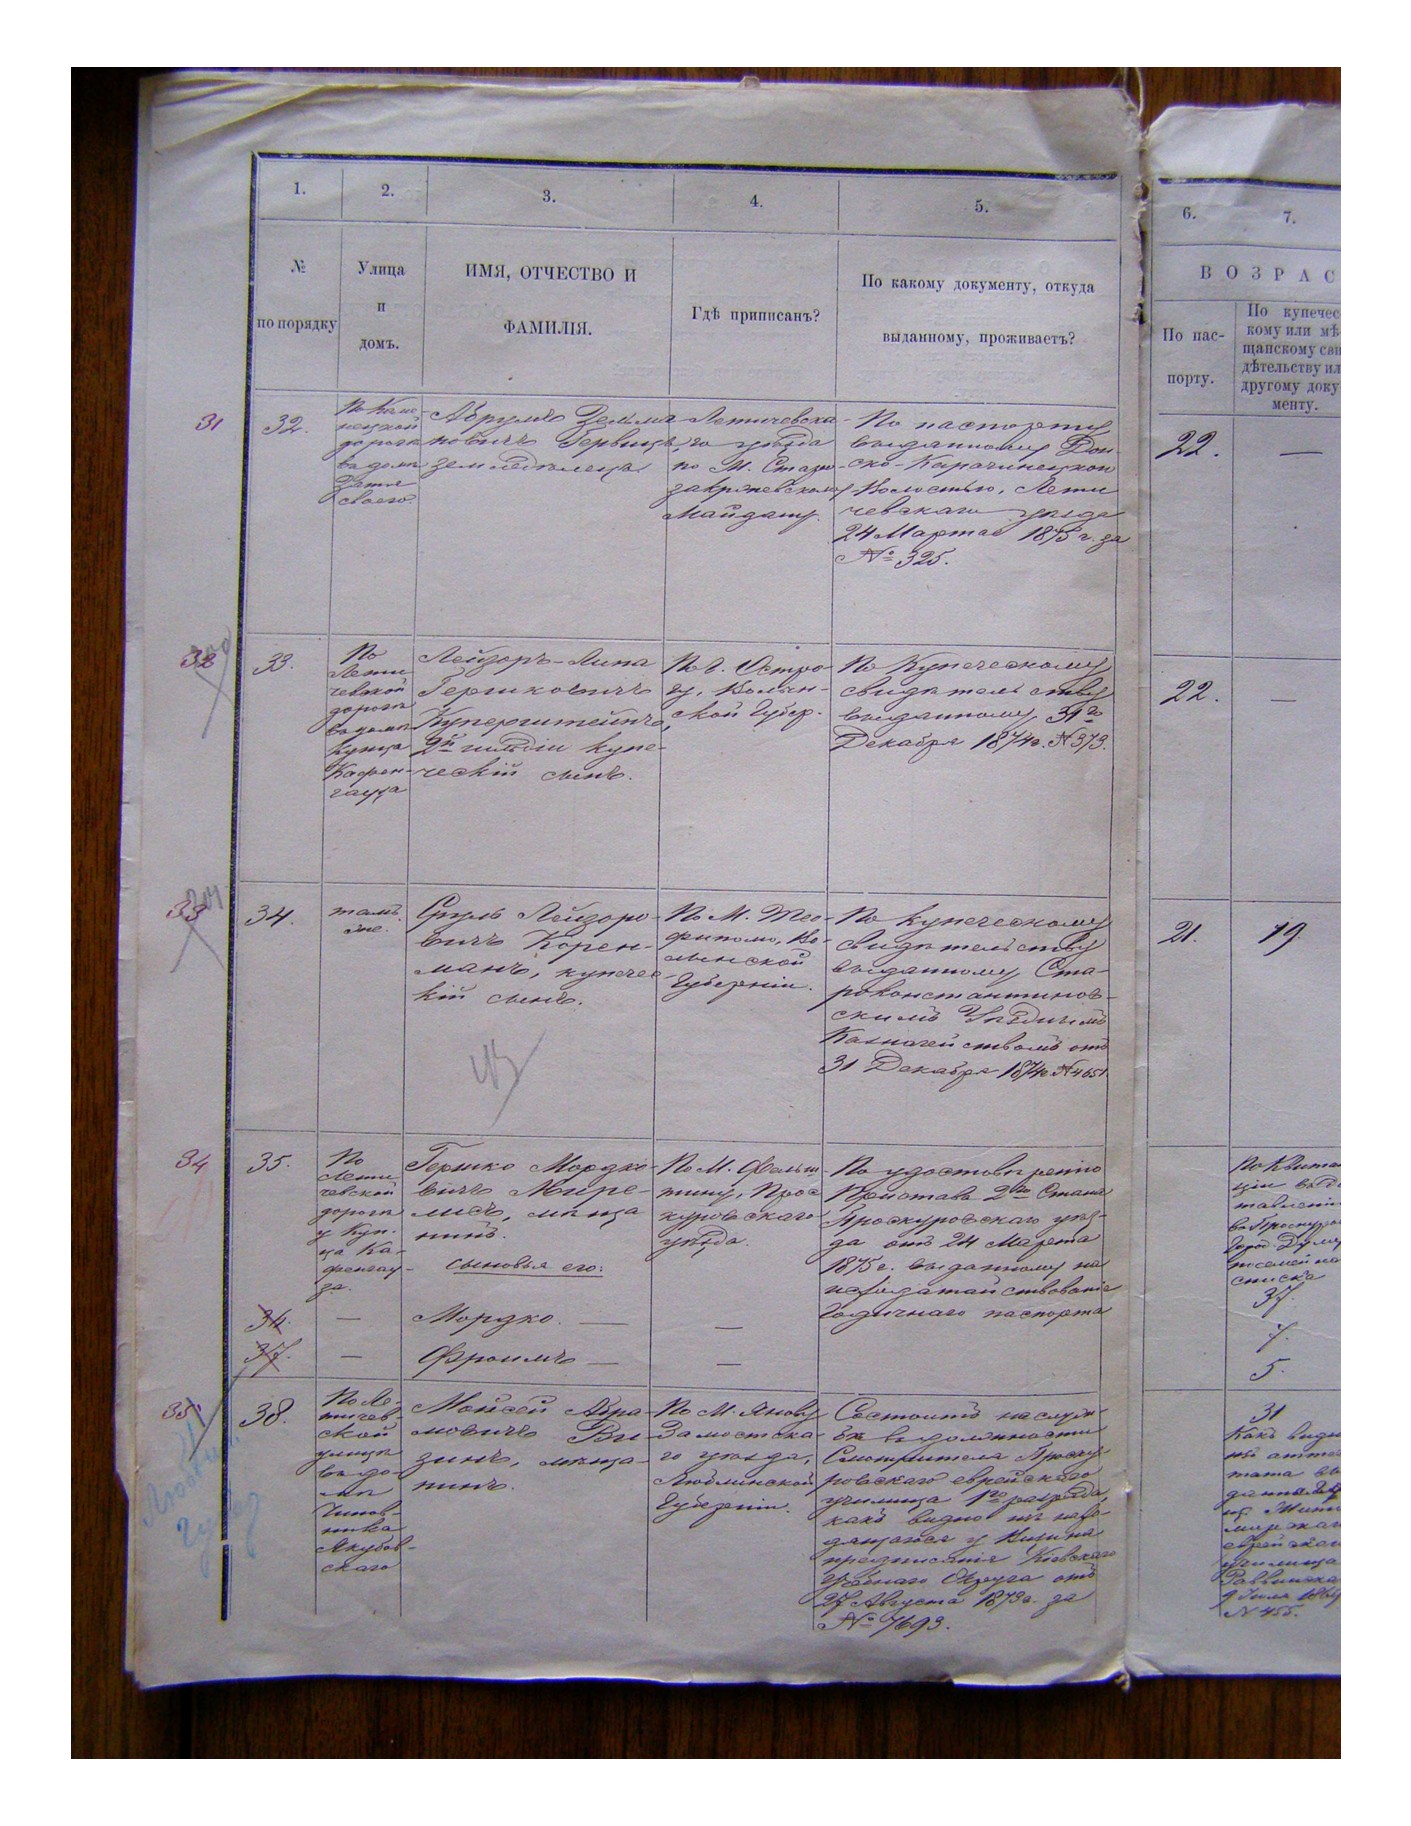 1.
2.
3.
4.
5.
6.
7.
№
по порядку
Улица
и
домъ.
ИМЯ, ОТЧЕСТВО И
ФАМИЛІЯ.
Гдѣ приписанъ?
По какому документу, откуда
выданному, проживаетъ?
ВОЗРАС
По пас-
порту.
По купечес
кому или мѣ
щанскому сви
дѣтельству ил
другому доку
менту.
31
32.
По Каме-
нецкой
дорогѣ
въ домѣ
Зятя
своего.
Абрумъ Зельма
новичъ
земледѣлецъ
Летичевска-
го уѣзда
по М. Старо
закревскому
Майдану.
По паспорту
выданному
Волостью, Лети
чевскаго уѣзда
24 Марта 1875 г. за
№ 325.
22.
—
32
33.
По
Лети-
чевской
дорогѣ
въ домѣ
Купца
Кофен-
гауза
Лейзоръ-Липа
Гершковичъ
Куперштейнъ,
2й гильдіи купе-
ческій сынъ.
По г. Остро-
гу, Волын-
ской Губер.
По Купеческому
свидѣтельству
выданному 31го
Декабря 1874г. № 373.
22.
—
33
34.
тамъ
же.
Сруль Лейзоро-
вичъ Корен-
манъ, купечес-
кій сынъ.
По М. Тео-
фиполю, Во-
лынской
Губерніи.
По купеческому
свидѣтельству
выданному Ста-
роконстантинов-
скимъ Уѣзднымъ
Казначействомъ отъ
31 Декабря 1874г. № 4651.
21.
19
34
35.
По
Лети-
чевской
дорогѣ
у Куп-
ца Ка-
фенгау-
за.
Гершко Мордко-
вичъ Мире-
лисъ, мѣща
нинъ.
сыновья его:
По М. Фельш-
тину, Прос
куровскаго
уѣзда.
По удостовѣренію
Пристава 2го Стана
Проскуровскаго уѣз-
да отъ 24 Марта
1875 г. выданному на
исходатайствованіе
Годичнаго паспорта
По Квитан
въ Проскуров
Город. Думу
списка
37.
36.
—
Мордко. —
—
7.
37.
—
Фроимъ —
—
5.
35
38.
По Ле-
тичев-
ской
улицѣ
въ до-
мѣ
Чинов-
ника
Якубов-
скаго
Мойсей Абра-
мовичъ Ви
зинъ, мѣща-
нинъ.
По М. Янову
Замостска-
го уѣзда,
Люблинской
Губерніи.
Состоитъ на служ-
бѣ въ должности
Смотрителя Проску-
ровскаго еврейскаго
училища 1го разряда,
какъ видно изъ нахо-
дящагося у Визина
предписанія Кіевскаго
Учебнаго Округа отъ
27 Августа 1873г. за
№ 7693.
31
Какъ видно
изъ аттес
тата вы
даннаго
еврейскаго
училища
9 Іюля
№ 455.